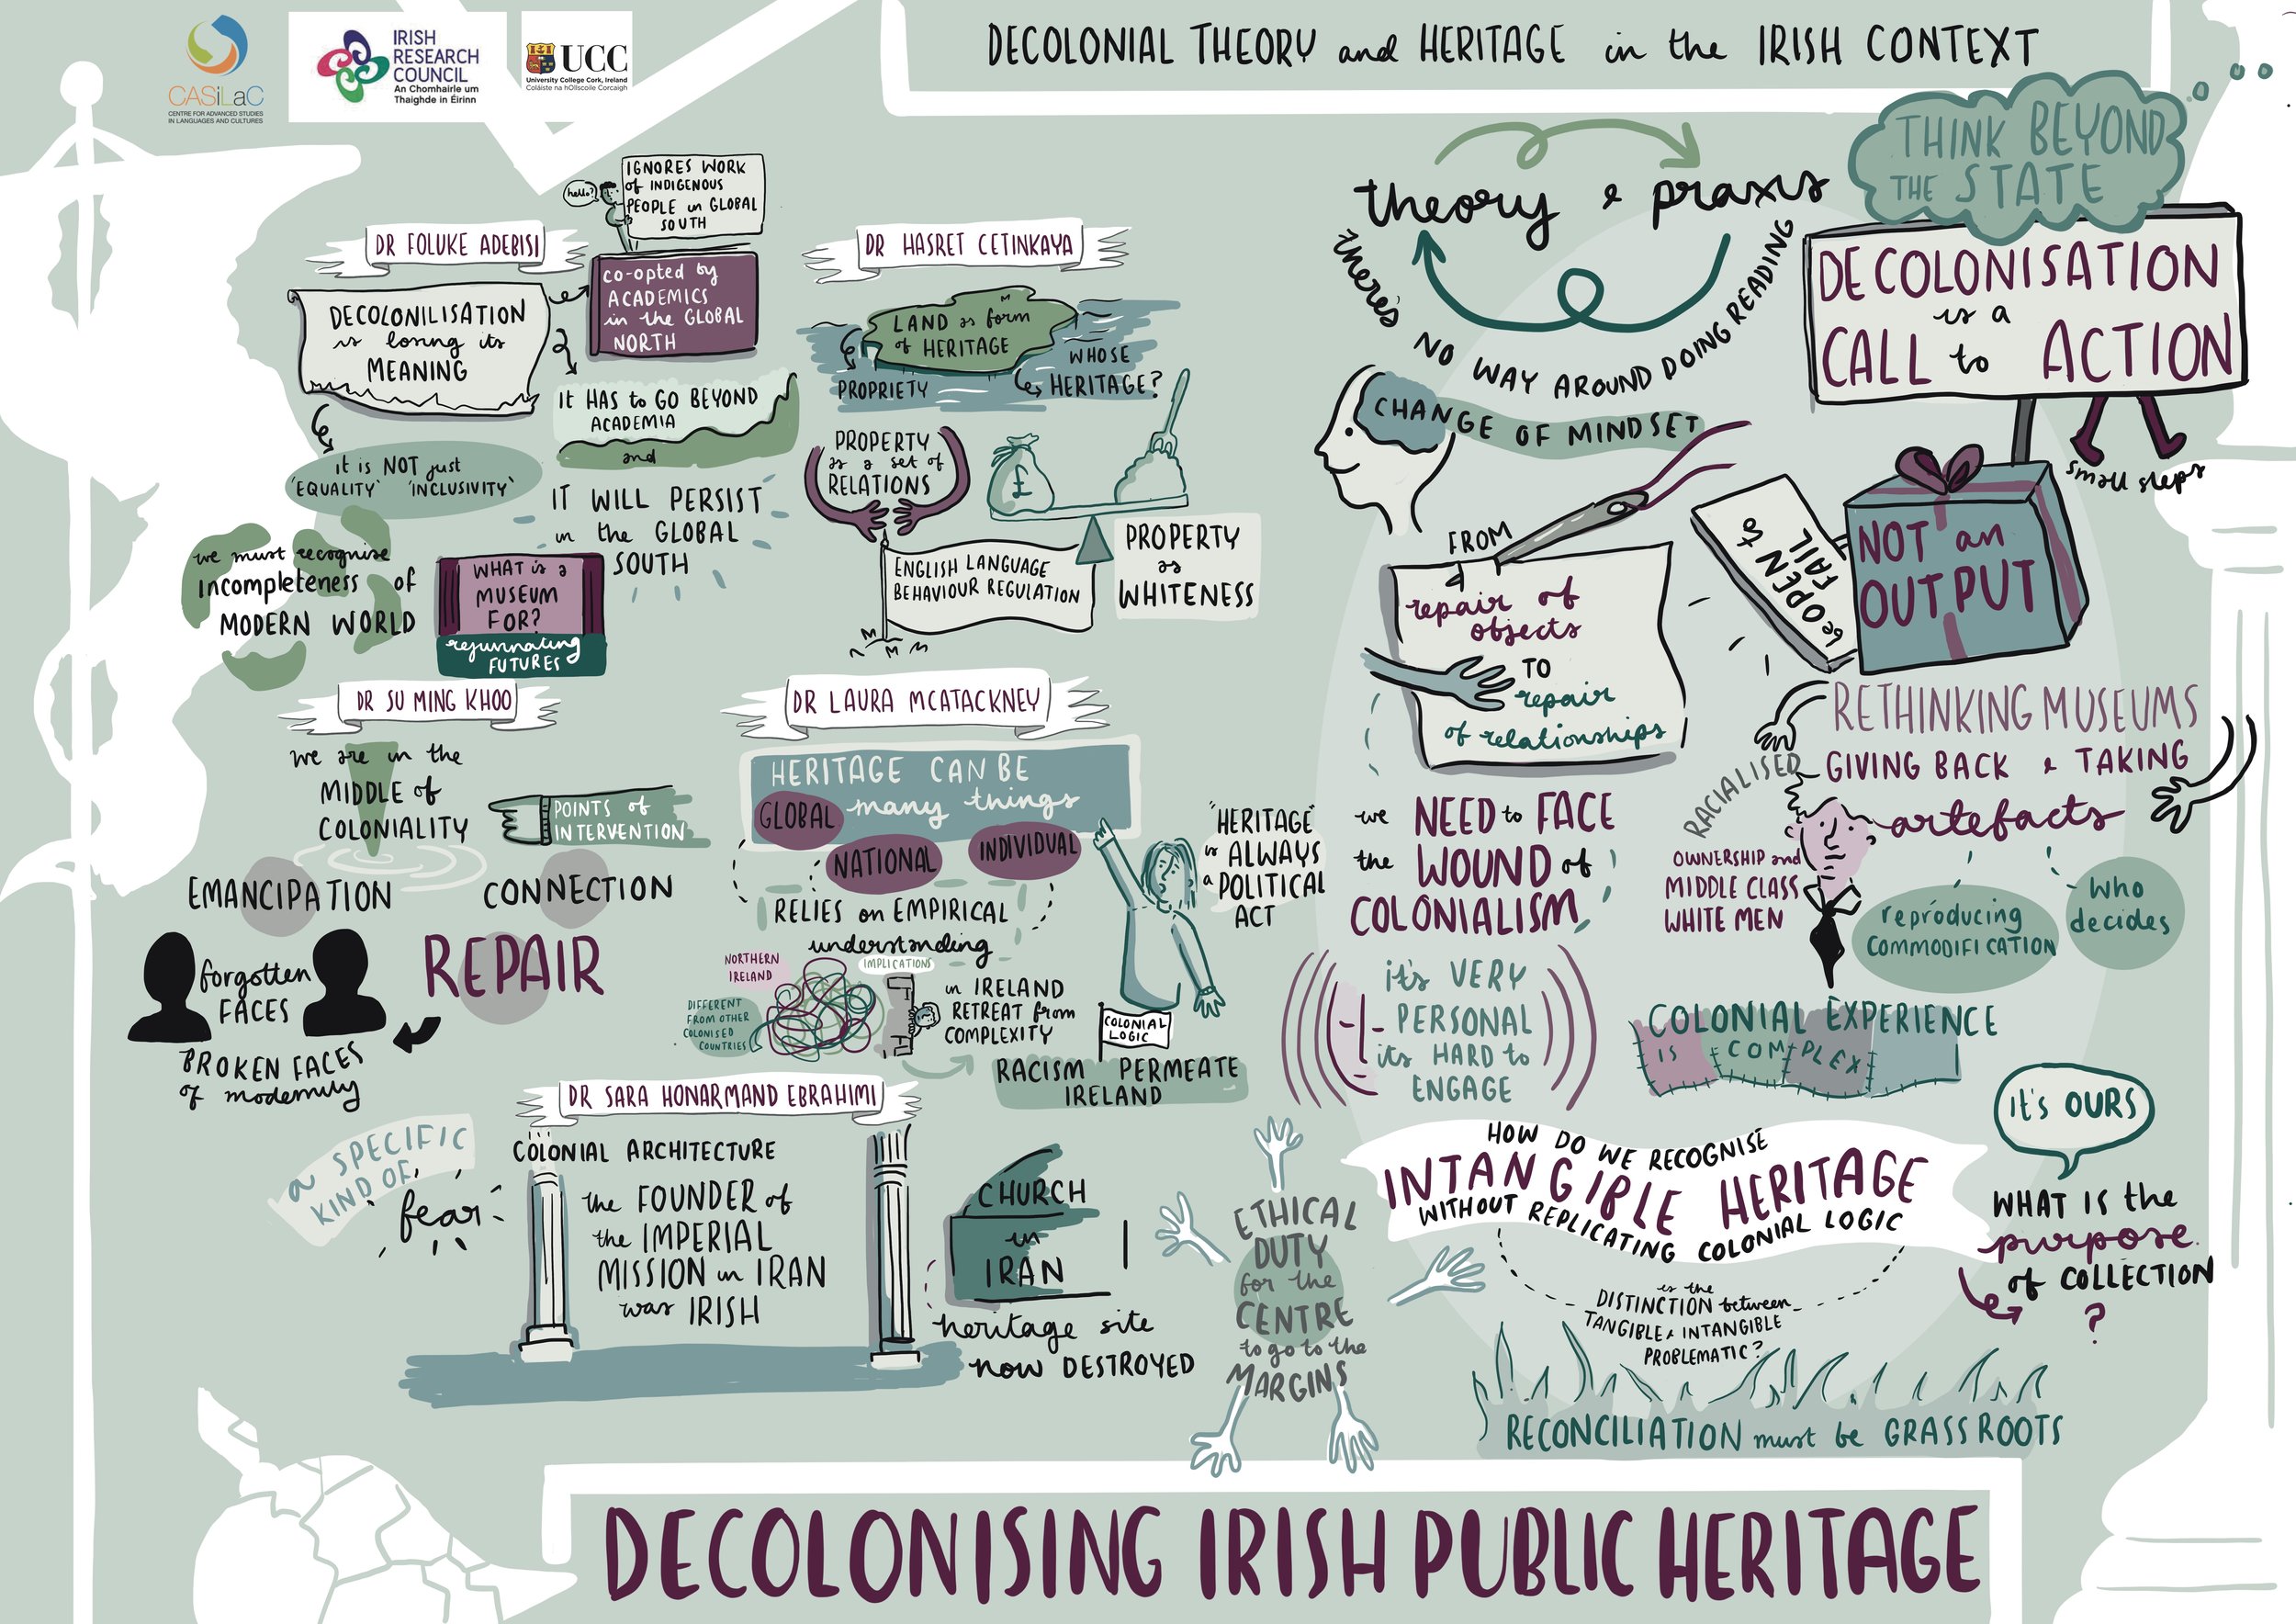 CASiLaC
CENTRE FOR ADVANCED STUDIES
IN LANGUAGES AND CULTURES
IRISH
RESEARCH
COUNCIL
An Chomhairle um
Thaighde in Éirinn
UCC
University College Cork, Ireland
Coláiste na hOllscoile Corcaigh
DECOLONIAL THEORY and HERITAGE in the IRISH CONTEXT
DR FOLUKE ADEBISI
DECOLONILISATION
is losing its
MEANING
hello?
IGNORES WORK
of INDIGENOUS
PEOPLE in GLOBAL
SOUTH
co-opted by
ACADEMICS
in the GLOBAL
NORTH
IT HAS to GO BEYOND
ACADEMIA
and
IT WILL PERSIST
in the GLOBAL
SOUTH
it is NOT just
'EQUALITY' 'INCLUSIVITY'
we must recognise
incompleteness of
MODERN WORLD
WHAT is a
MUSEUM
FOR?
rejuvinating
FUTURES
DR HASRET CETINKAYA
LAND as form
of HERITAGE
PROPRIETY
WHOSE
HERITAGE?
PROPERTY
as a set of
RELATIONS
£
ENGLISH LANGUAGE
BEHAVIOUR REGULATION
PROPERTY
as
WHITENESS
DR SU MING KHOO
we are in the
MIDDLE of
COLONIALITY
POINTS of
INTERVENTION
EMANCIPATION
CONNECTION
REPAIR
forgotten
FACES
BROKEN FACES
of modernity
DR LAURA MCATACKNEY
HERITAGE CAN BE
many things
GLOBAL
NATIONAL
INDIVIDUAL
RELIES on EMPIRICAL
understanding
"HERITAGE"
is ALWAYS
a POLITICAL
ACT
NORTHERN
IRELAND
DIFFERENT
FROM OTHER
COLONISED
COUNTRIES
IMPLICATIONS
in IRELAND
RETREAT from
COMPLEXITY
COLONIAL
LOGIC
RACISM PERMEATE
IRELAND
DR SARA HONARMAND EBRAHIMI
a SPECIFIC
KIND OF
fear
COLONIAL ARCHITECTURE
the FOUNDER of
the IMPERIAL
MISSION in IRAN
was IRISH
CHURCH
in
IRAN
heritage site
now DESTROYED
theory & praxis
there's NO WAY AROUND DOING READING
CHANGE OF MINDSET
THINK BEYOND
THE STATE
DECOLONISATION
is a
CALL to ACTION
small steps
be OPEN to
FAIL
NOT an
OUTPUT
FROM
repair of
objects
TO
repair
of relationships
we NEED to FACE
the WOUND of
COLONIALISM
it's VERY
PERSONAL
its HARD to
ENGAGE
RETHINKING MUSEUMS
GIVING BACK & TAKING
artefacts
RACIALISED
OWNERSHIP and
MIDDLE CLASS
WHITE MEN
reproducing
COMMODIFICATION
who
decides
COLONIAL EXPERIENCE
IS COMPLEX
HOW DO WE RECOGNISE
INTANGIBLE HERITAGE
WITHOUT REPLICATING COLONIAL LOGIC
is the
DISTINCTION between
TANGIBLE & INTANGIBLE
PROBLEMATIC?
it's OURS
WHAT IS the
purpose
of COLLECTION
?
ETHICAL
DUTY
for the
CENTRE
to go to the
MARGINS
RECONCILIATION must be GRASSROOTS
DECOLONISING IRISH PUBLIC HERITAGE